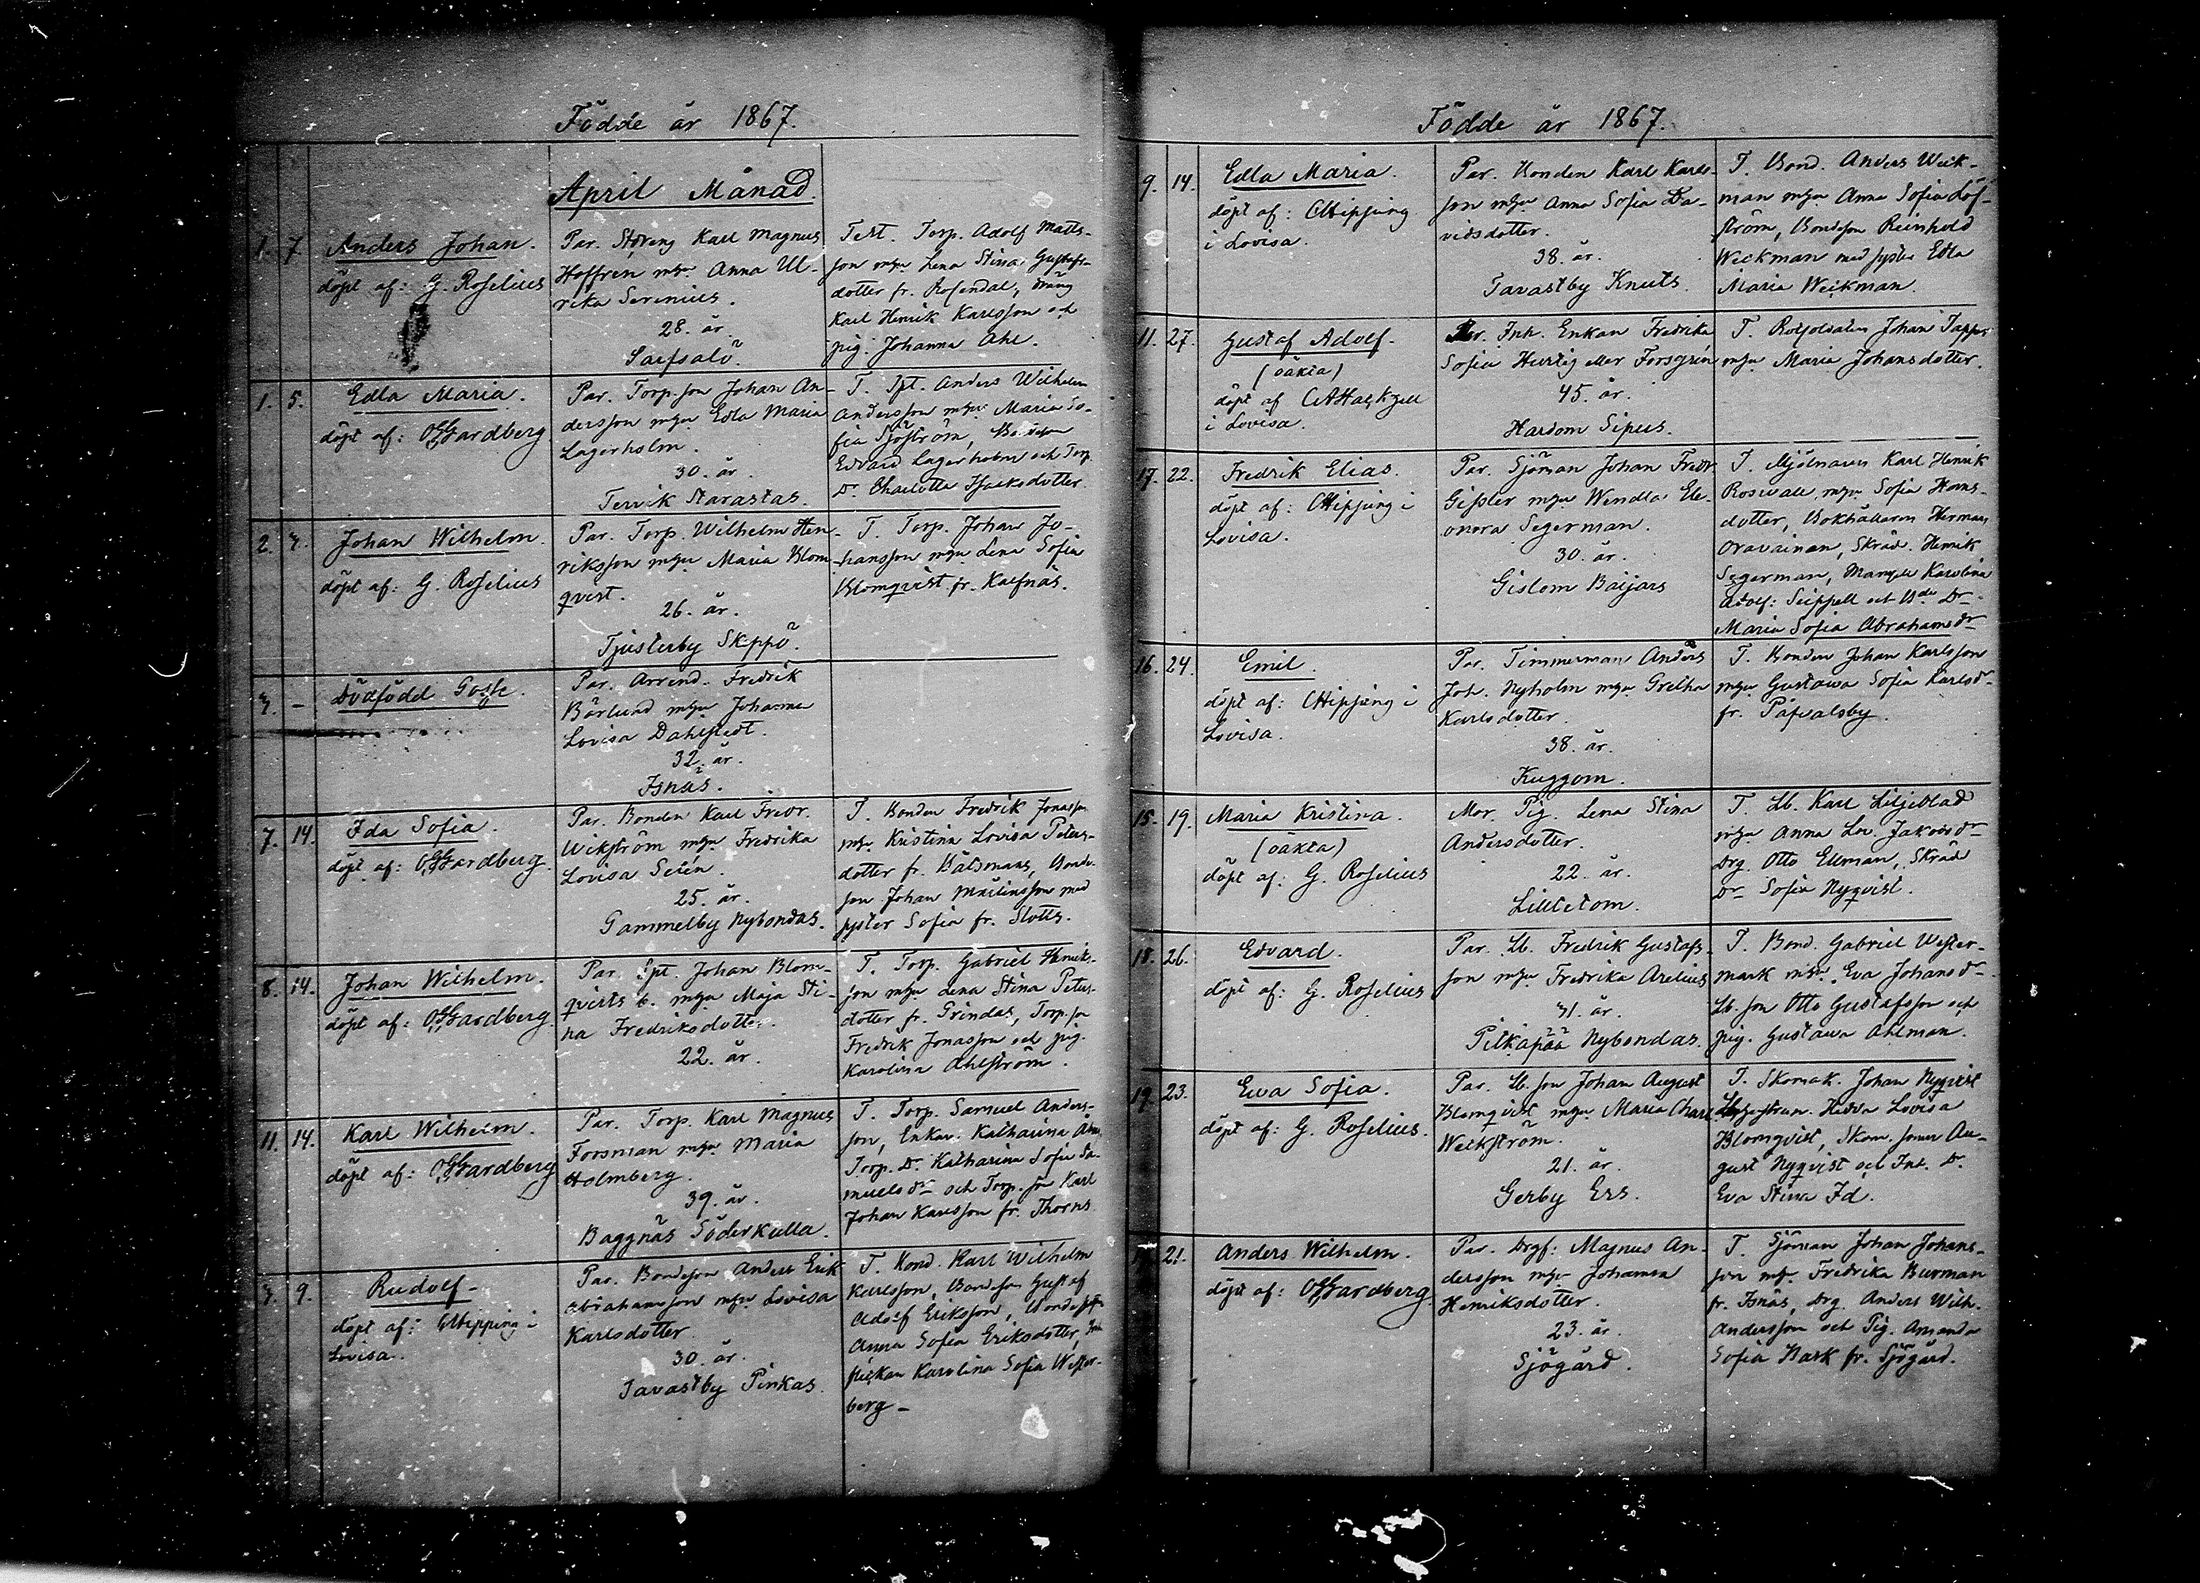 Födde år 1867.
April Månad.
1. 7. Anders Johan.
döpt af: G. Roselius
Par. Karl Magnus
Hoffren m hu Anna Ul-
rika Serenius.
28. år.
Sarfsalö
Test. Torp. Adolf Matts-
son m hu Lena Stina Gustafs-
dotter fr. Rosendal, dräng
Karl Henrik Karlsson och
pig. Johanna Ahl.
1. 5. Edla Maria.
döpt af: Gardberg
Par. Torp. son Johan An-
dersson m hu Edla Maria
Lagerholm.
30. år
Tervik Starastas.
T. Spt. Anders Wilhelm
Andersson m hu Maria So-
fia Sjöström,
Edvard Lagerholm och Torp.
Dr. Charlotta Isaksdotter
2. Johan Wilhelm.
döpt af: G. Roselius
Par. Torp. Wilhelm Hen-
riksson m hu Maria Blom-
qvist.
26. år.
Tjusterby Skeppö.
T. Torp. Johan Jo-
hansson m hu Lena Sofia
Blomqvist fr. Kalfnäs.
– Dödfödd Gosse.
Par. Arrend. Fredrik
Bärlund m hu Johanna
Lovisa Dahlstedt.
32. år.
Isnäs.
7. 14. Ida Sofia.
döpt af: Gardberg.
Par. Bonden Karl Fredr.
Wikström m hu Fredrika
Lovisa Selén.
25. år.
Gammelby Nybondas.
T. Bonden Fredrik Jonasson
m hu Kristina Lovisa Peters-
dotter fr. Bätsmans, Bonde-
son Johan Mårtinsson med
syster Sofia fr. Slotts.
8. 14. Johan Wilhelm.
döpt af: Gardberg
Par. Spt. Johan Blom-
qvists e. m hu Maja Sti-
na Fredriksdotter.
22. år.
T. Torp. Gabriel Henriks-
son m hu Lena Stina Peters-
dotter fr. Grindas, Torp. son
Fredrik Jonasson och pig.
Karolina Ahlström.
11. 14. Karl Wilhelm.
döpt af: Gardberg
Par. Torp. Karl Magnus
Forsman m hu Maria
Holmberg.
39. år.
Baggnäs Söderkulla.
T. Torp. Samuel Anders-
son, Enkan Katharina
Torp. Dr. Katharina Sofia Sa-
muelsdr och Torp. son Karl
Johan Karlsson fr. Thorns
9. Rudolf –
döpt af: i
Lovisa.
Par. Bondeson Anders Erik
Abrahamsson m hu Lovisa
Karlsdotter
30. år.
Tavastby Pinkas.
T. Bond. Karl Wilhelm
Karlsson, Bondeson Gustaf
Adolf Eriksson,
Anna Sofia Eriksdotter,
flickan Karolina Sofia Wester-
berg –
Födde år 1867.
9. 14. Edla Maria.
döpt af:
i Lovisa.
Par. Bonden Karl Karls-
son m hu Anna Sofia Da-
vidsdotter.
38. år.
Tavastby Knuts.
T. Bond. Anders Weck-
man m hu Anna Sofia Löf-
ström, Bondeson Reinhold
Weckman med syster Edla
Maria Weckman.
11. 27. Gustaf Adolf.
(oäkta)
döpt af
i Lovisa.
Par. Inh. Enkan Fredrika
Sofia Hurtig eller Forsgrén
45. år.
Hardom Sipus.
T. Rotsoldaten Johan
m hu Maria Johansdotter.
17. 22. Fredrik Elias.
döpt af: i
Lovisa.
Par. Sjöman Johan Fredr.
Gissler m hu Wendla Ele-
onora Segerman.
30. år.
Gislom Baijars
T. Mjölnaren Karl Henrik
Rosvall, m hu Sofia Hans-
dotter, Bokhållaren Herman
Oravainan, Skräd. Henrik
Segerman, Mamsell Karolina
Adolf: Seippell och Dr
Maria Sofia Abrahamsdr
16. 24. Emil.
döpt af: i
Lovisa.
Par. Timmerman Anders
Joh. Nyholm m hu Gretha
Karlsdotter.
38. år.
Kuggom.
T. Bonden Johan Karlsson
m hu Gustava Sofia Karlsdr
fr. Påvalsby.
15. 19. Maria Kristina.
(oäkta)
döpt af: G. Roselius
Mor. Pig. Lena Stina
Andersdotter.
22. år.
Lilletom.
T. Lb. Karl Liljeblad
m hu Anna Lov. Jakobsdr
Drg. Otto Ekman, Skräd
Dr Sofia Nyqvist.
18. 26. Edvard.
döpt af: G. Roselius
Par. Lb. Fredrik Gustafs-
son m hu Fredrika Arelius
31. år.
Pitkäpää Nybondas.
T. Bond. Gabriel Wester-
mark m hu Eva Johansdr
Lb. son Otto Gustafsson och
pig. Gustava Ahlman.
19. 23. Eva Sofia.
döpt af: G. Roselius.
Par. Lb. son Johan August
Blomqvist m hu Maria Charl
Weckström.
21. år.
Gerby Ers.
T. Skomak. Johan Nyqvist
Hedda Lovisa
Blomqvist, Skom. sonen Au-
gust Nyqvist och Inh. Dr.
Eva Stina Id.
21. Anders Wilhelm.
döpt af: Gardberg
Par. Drgf: Magnus An-
dersson m hu Johanna
Henriksdotter.
23. år.
Sjögård.
T. Sjöman Johan Johans-
son m hu Fredrika Burman
fr. Isnäs, Drg. Anders Wilh.
Andersson och Pig. Amanda
Sofia Bark fr. Sjögård.